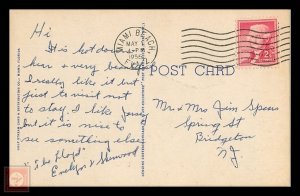 Hi
It is hot down
here & very beautiful
I really like it but
just to visit not
to stay I like Jersey
but it is nice to
see something else
"The Lloyds"
Evelyn & Sherwood
MIAMI BEACH,
MAY
PM
195
POST CARD
2¢
Mr & Mrs Jim Spears
Spring St
Bridgeton
NJ